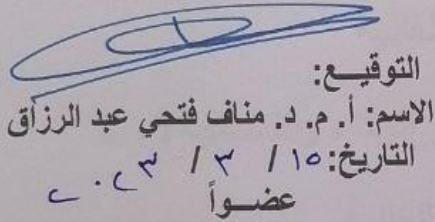 التوقيــع:
الاسم: أ. م. د. مناف فتحي عبد الرزاق
التاريخ: ١٥ / ٣ / ٢٠٢٣
عضــواً